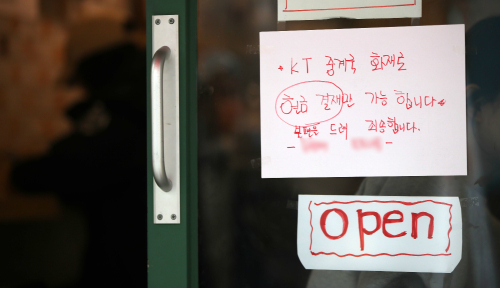 * KT 중계국 화재로
현금 결재만 가능 합니다*
불편을 드려 죄송합니다.
open